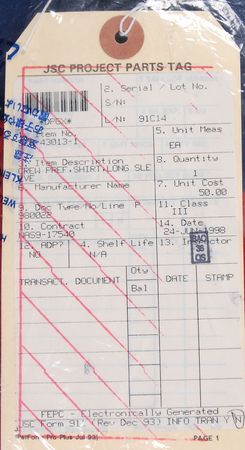 JSC PROJECT PARTS TAG
2. Serial / Lot No.
S/N:
L/N: 91C14
Item No.
43013-1
5. Unit Meas
EA
Item Description
CREW PREF,SHIRT,LONG SLE
EVE
8. Quantity
1
Manufacturer Name
7. Unit Cost
50.00
9. Doc Type/No/Line P
980028
11. Class
III
10. Contract
NAS9-17540
14. Date
24-JUN-1998
12. ADP?
NO
4. Shelf Life
N/A
13. Inspector
TRANSACT. DOCUMENT
Qty
Bal
DATE
STAMP
FEPC - Electronically Generated
JSC Form 911 (Rev Dec 93) INFO TRAN Y N
PerForm Pro Plus Jul 93)
PAGE 1